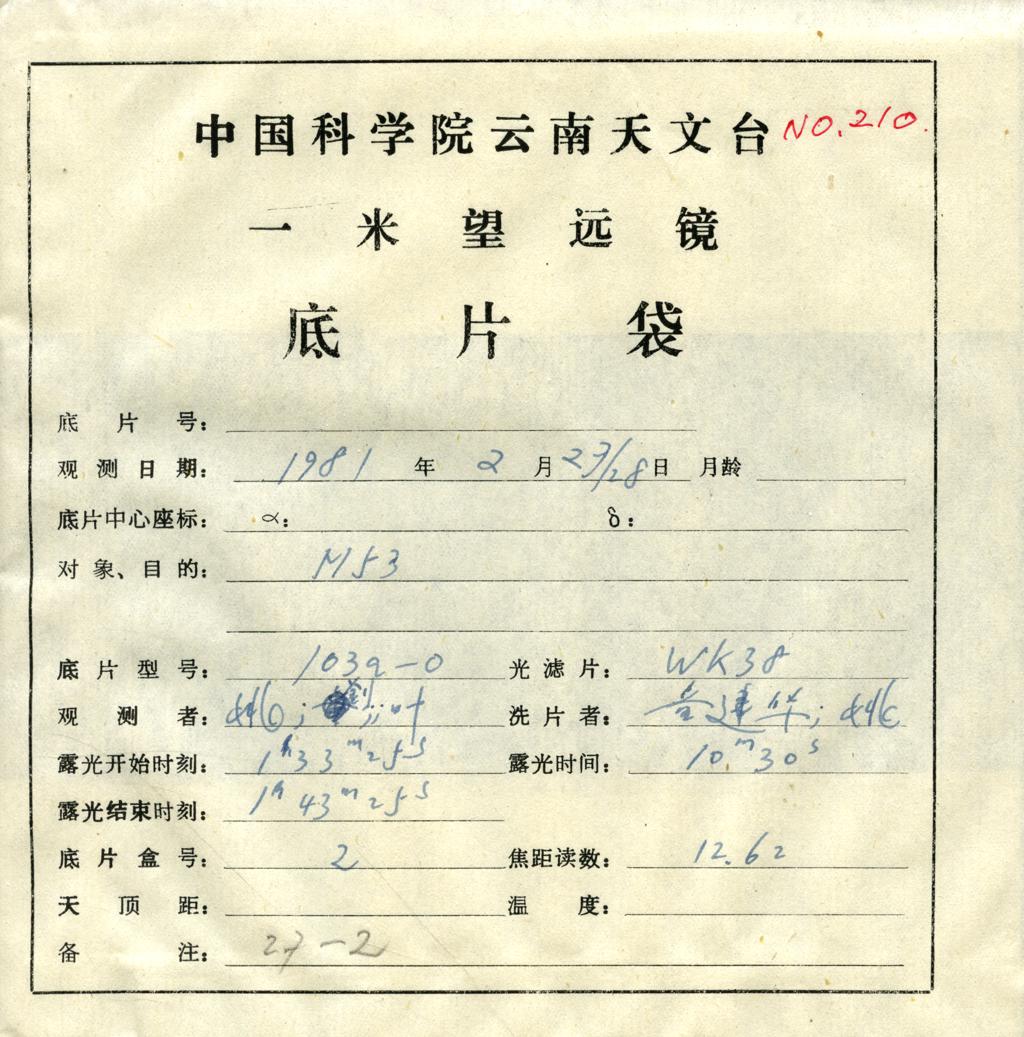 中国科学院云南天文台 NO.210.
一米望远镜
底片袋
底片号：
观测日期： 1981 年 2 月 27/28 日 月龄
底片中心座标： α： δ：
对象、目的： M53
底片型号： 103a-O 光滤片： WK38
观测者： 姚; 刘;叶 洗片者： 建华; 姚
露光开始时刻： 1h33m25s 露光时间： 10m30s
露光结束时刻： 1h43m25s
底片盒号： 2 焦距读数： 12.62
天顶距： 温度：
备注： 27-2